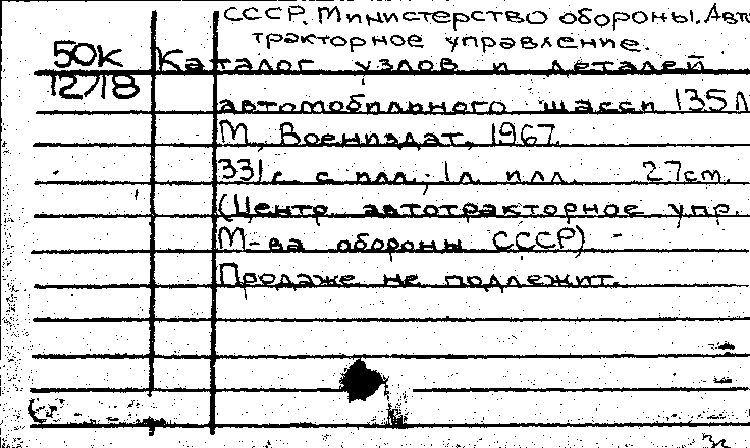 СССР. Министерство обороны. Авто
тракторное управление.
50К
12/18
Каталог узлов и деталей
автомобильного шасси 135Л
М., Воениздат, 1967.
331с. с илл.; 1л илл. 27см.
(Центр. автотракторное упр.
М-ва обороны СССР)
Продаже не подлежит.